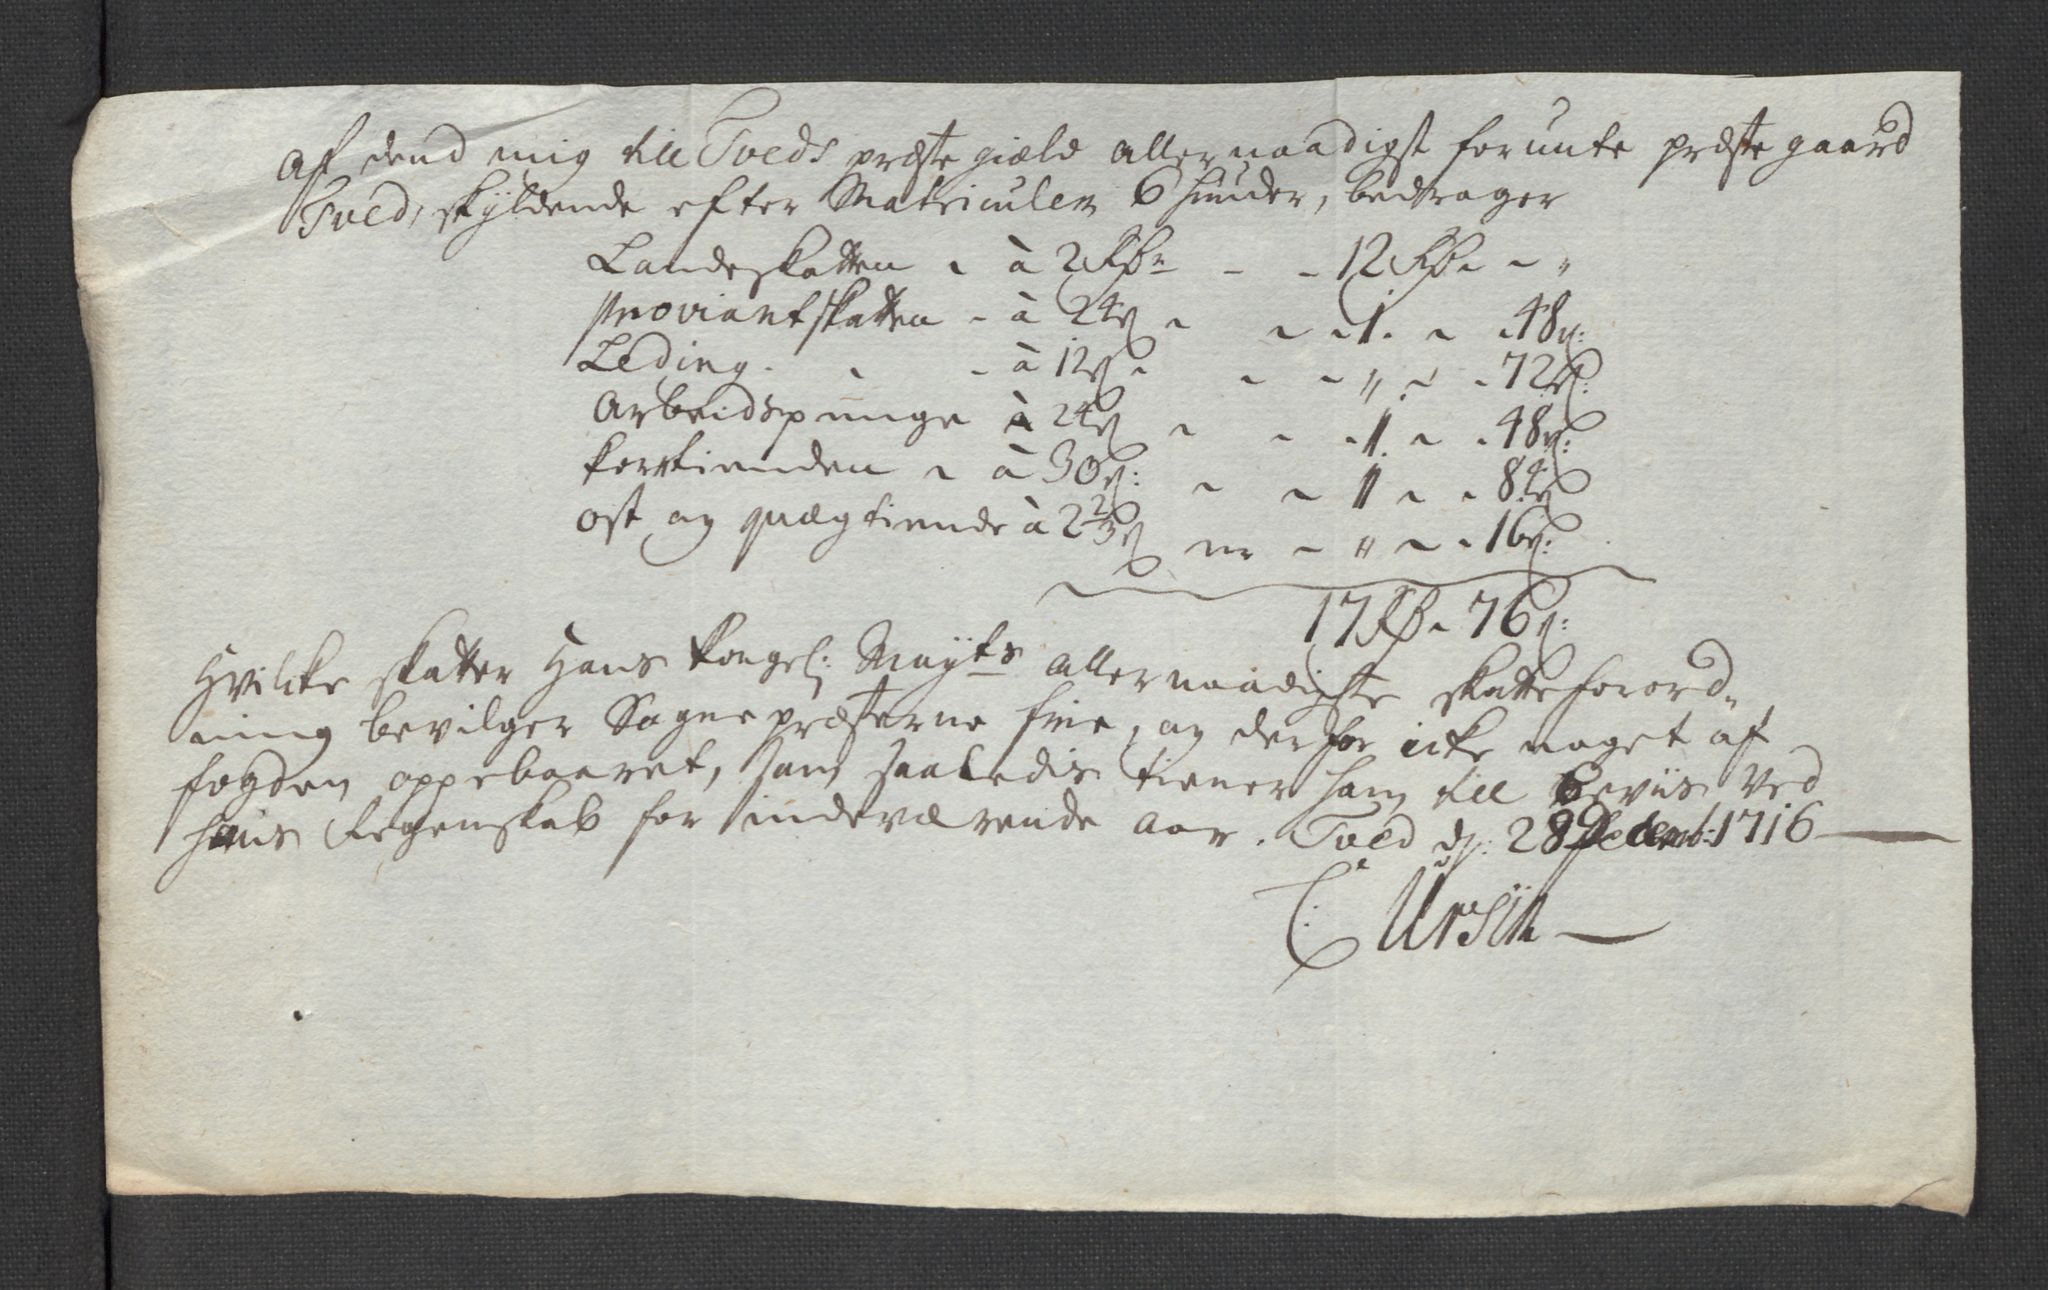 Af dend mig till Tveds præste giæld allernaadigst forunte præste gaard
Tved, skÿldende efter Matriculen 6 huuder, bedrager
Landskatten - à 2 Rdr - - 12 Rdr - - "
Proviantskatten - à 24 s - - - 1. - - 48 s:
Leding. - - à 12 s - - - " - - 72 s:
Arbeidspenge à 24 s - - - 1. - - 48 s:
Korntienden - à 30 s: - - 1 - - 84 s
ost og qvægtiende à 2 2/3 s - - " - - 16 s:
17 Rdr - 76 s:
Hvilcke skatter Hans Kongel: Maÿts allernaadigste skatteforord-
ning bevilger Sogne præsterne frie, og derfor icke noget af
fogden oppebaaret, som saaledis tiener ham till Beviis ved
hans Regenskab for indeværende aar. Tved d: 28 Decemb: 1716
C: Ursin